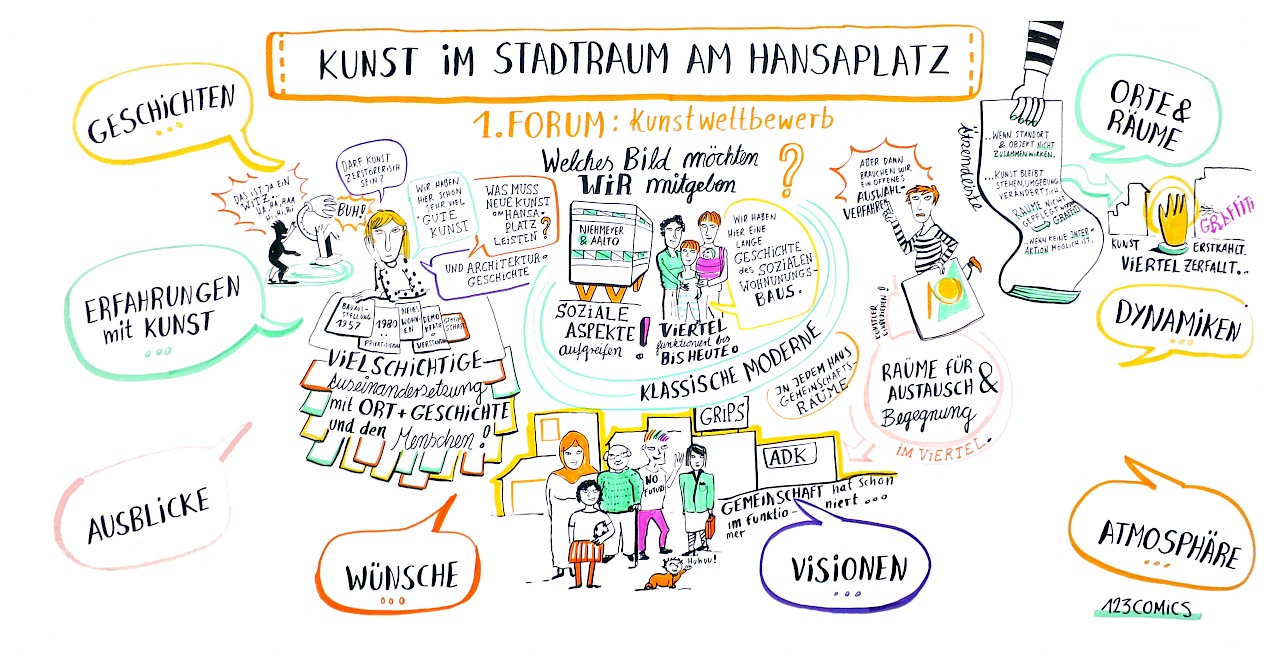 KUNST iM STADTRAUM AM HANSAPLATZ
1. FORUM: Kunstwettbewerb
Welches Bild möchten
WiR mitgeben
?
GESCHiCHTEN
...
DAS IST JA EIN
WITZ...
HA, HA, HAA
Hi, Hi, Hi
BUH!!
DARF KUNST
ZERSTÖRERISCH
SEIN?
WIR HABEN
HIER SCHON
SEHR VIEL
GUTE
KUNST
WAS MUSS
NEUE KUNST
am HANSA-
PLATZ
LEISTEN?
UND ARCHITEKTUR-
GESCHICHTE
ERFAHRUNGEN
mit KUNST
...
BAUAUS-
STELLUNG
1957
1980
PRIVATISIERUNG
NEUES
WOHN-
EN
DEMO
KRATIE
VERSTÄNDNIS
GEMEIN
SCHAFT
ViELSCHiCHTiGE
Auseinandersetzung
mit ORT + GESCHiCHTE
und den Menschen!
NIEHMEYER
& AALTO
SOZiALE
ASPEKTE
aufgreifen!
ViERTEL
funktioniert bis
BiS HEUTE!
WIR HABEN
HIER EINE
LANGE
GESCHICHTE
des SOZIALEN
WOHNUNUNGS-
BAUS.
KLASSiSCHE MODERNE
IN JEDEM HAUS
GEMEINSCHAFTS-
RÄUME
ABER DANN
BRAUCHEN WIR
EIN OFFENES
AUSWAHL-
VERFAHREN
KÜNSTLER
EINBEZIEHEN!
RÄUME FÜR
AUSTAUSCH &
Begegnung
iM ViERTEL.
Störendeliste
...WENN STANDORT
& OBJEKT NICHT
ZUSAMMENWIRKEN.
...KUNST BLEIBT
STEHEN, UMGEBUNG
VERÄNDERT SICH
RÄUME NICHT
GEPFLEGT WERDEN
GRAFFITI
...WENN KEINE INTER-
AKTION MÖGLICH IST.
ORTE &
RÄUME
GRAFFiTi
KUNST ERSTRAHLT.
ViERTEL ZERFALLT...
DYNAMiKEN
...
GRiPS
ADK
NO
FUTURE
GEMEINSCHAFT hat schon
immer funktioniert ...
Huhuu!
AUSBLiCKE
WÜNSCHE
...
ViSiONEN
...
ATMOSPHÄRE
...
123COMiCS